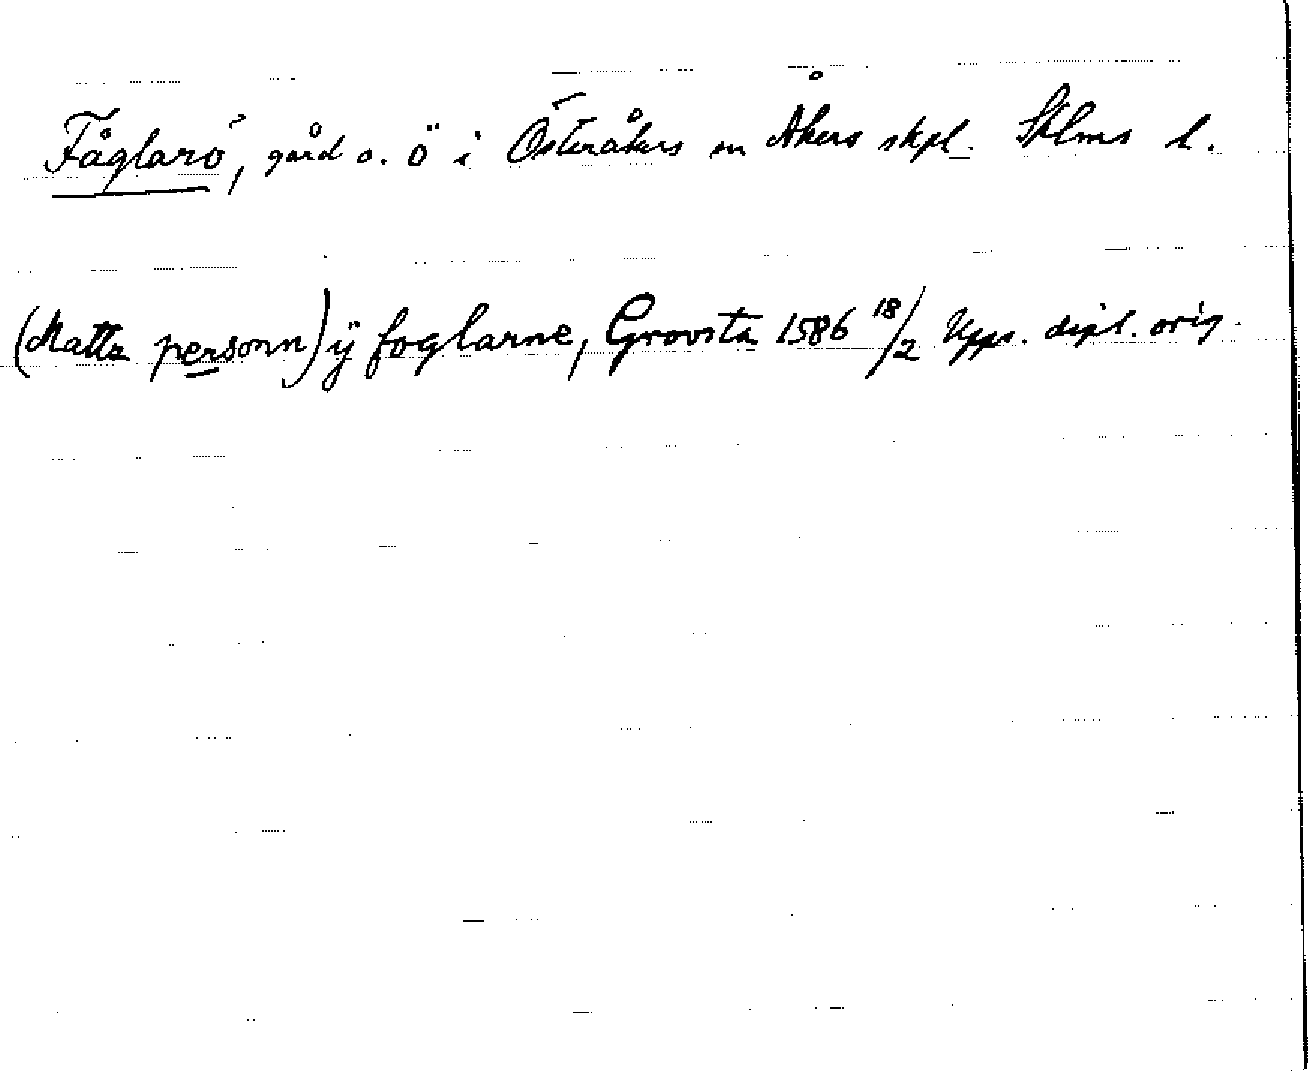 Fåglarö, gård o. ö i Österåkers sn Åkers skpl. Sthlms l.
(Matts personn) ÿ foglarne, Grovsta 1586 18/2 Upps. dipl. orig.